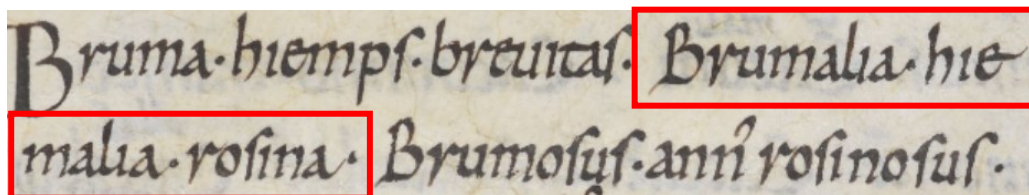 Bruma· hiemps· breuitas· Brumalia· hie
malia· rosina· Brumosus· ann̄ rosinosus·